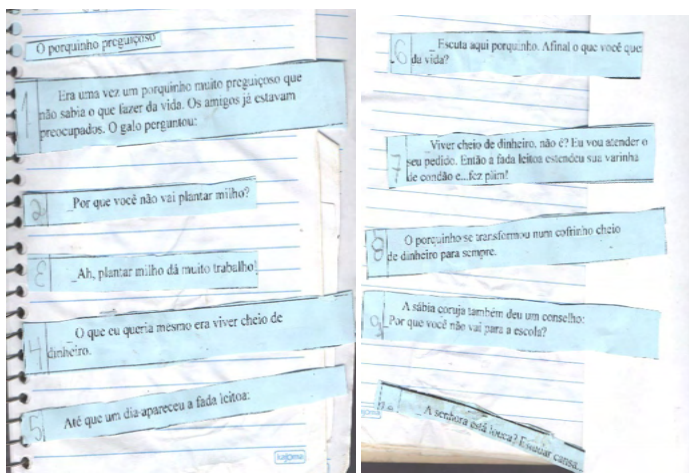 O porquinho preguiçoso
1
Era uma vez um porquinho muito preguiçoso que
não sabia o que fazer da vida. Os amigos já estavam
preocupados. O galo perguntou:
2
_Por que você não vai plantar milho?
3
_Ah, plantar milho dá muito trabalho!
4
_O que eu queria mesmo era viver cheio de
dinheiro.
5
Até que um dia apareceu a fada leitoa:
6
_Escuta aqui porquinho. Afinal o que você quer
da vida?
7
_Viver cheio de dinheiro, não é? Eu vou atender o
seu pedido. Então a fada leitoa estendeu sua varinha
de condão e...fez plim!
8
O porquinho se transformou num cofrinho cheio
de dinheiro para sempre.
9
A sábia coruja também deu um conselho:
_Por que você não vai para a escola?
_A senhora está louca? Estudar cansa...